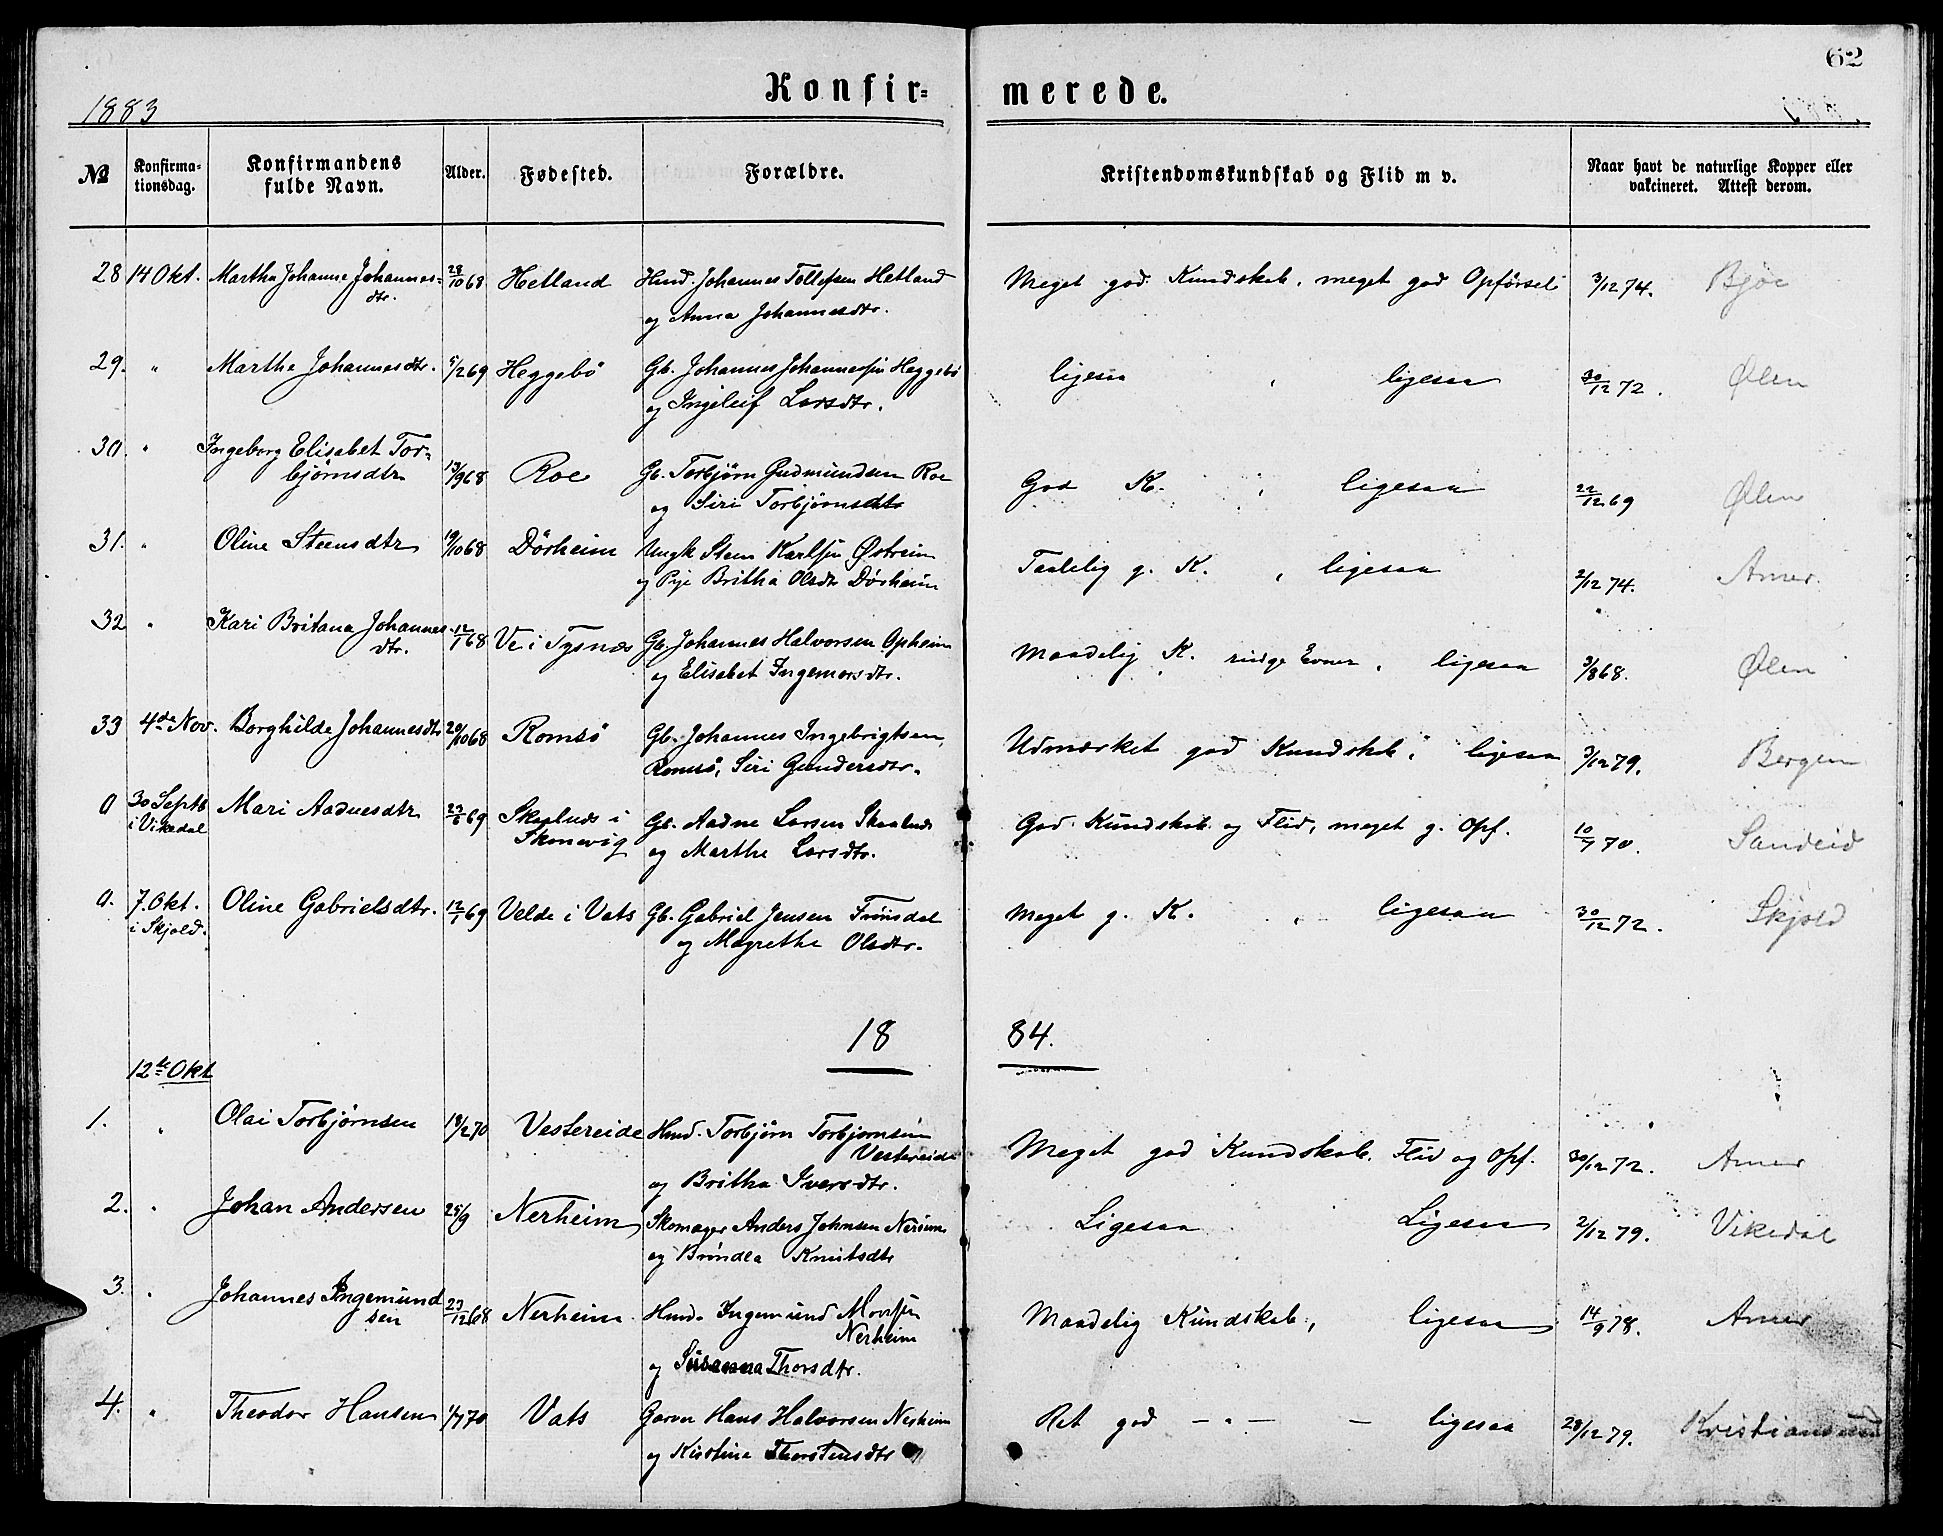 62
Konfir=merede.
1883
№ Konfirma=tionsdag. Konfirmandens fulde Navn. Alder. Fødested. Forældre. Kristendomskundskab og Flid m v. Naar havt de naturlige Kopper eller vakcineret. Attest derom.
28 14 Okt. Martha Johanne Johannes= 28/10 68 Hetland Hmd. Johannes Tollefsen Hetland Meget god Kundskab, meget god Opførsel 3/12 74. Bjoe
dtr. og Anna Johannesdtr.
29. " Marthe Johannesdtr. 5/2 69 Heggebö Gb. Johannes Johannessen Heggebö ligesaa , ligesaa 30/12 72. Ølen
og Ingeleif Larsdtr.
30. " Ingeborg Elisabet Tor=
bjørnsdtr 13/9 68 Roe Gb. Torbjörn Gudmundsen Roe God K. , ligesaa 22/12 69 Ølen
og Siri Torbjörnsdtr
31. " Oline Steensdtr 19/10 68 Dörheim Ungk Sten Karlsen Østrein Taalelig g. K. , ligesaa 2/12 74. Amer.
og Pige Britha Olsdtr Dörheim
32 " Kari Britana Johannes 12/1 68 Ve i Tysnæs Gb. Johannes Halvorsen Opheim Maadelig K. ringe Evner, ligesaa 3/8 68. Ølen
dtr. og Elisabet Ingemarsdtr.
33 4de Nov. Borghilde Johannesdtr 20/10 68 Romsö Gb. Johannes Ingebrigtsen, Udmærket god Kundskab, ligesaa 3/12 79. Bergen
Romsö, Siri Gundersdtr.
0 30 Septb Mari Aadnesdtr 23/6 69 Skaalnes i Gb. Aadne Larsen Skaalnes God Kundskab og Flid, meget g. Opf. 10/7 70. Sandeid
i Vikedal Skonevig og Marthe Larsdtr.
0. 7. Okt. Oline Gabrielsdtr. 12/1 69 Velde i Vats Gb. Gabriel Jensen Frönsdal Meget g. K. , ligesaa 30/12 72. Skjold
i Skjold. og Magrethe Olsdtr.
18 84.
12te Okt
1. " Olai Torbjørnsen 18/2 70 Vestereide Hmd. Torbjörn Torbjørnsen Meget god Kundskab, Flid og Opf. 30/12 72. Amer
Vestereide
og Britha Iversdtr.
2. " Johan Andersen 25/9 Nerheim Skomager Anders Johnsen Nerheim Ligesaa Ligesaa 2/12 79. Vikedal
og Bröndla Knutsdtr
3. " Johannes Ingemund 23/12 68 Nerheim Hmd. Ingemund Monssen Maadelig Kundskab, ligesaa 14/9 78. Amer
sen Nerheim
og Susanna Thorsdtr.
4. " Theodor Hansen 1/7 70 Vats Garver Hans Halvorsen Nerheim Ret god — " — — ligesaa 28/12 79. Kristiansund
og Kistine Thorstensdtr